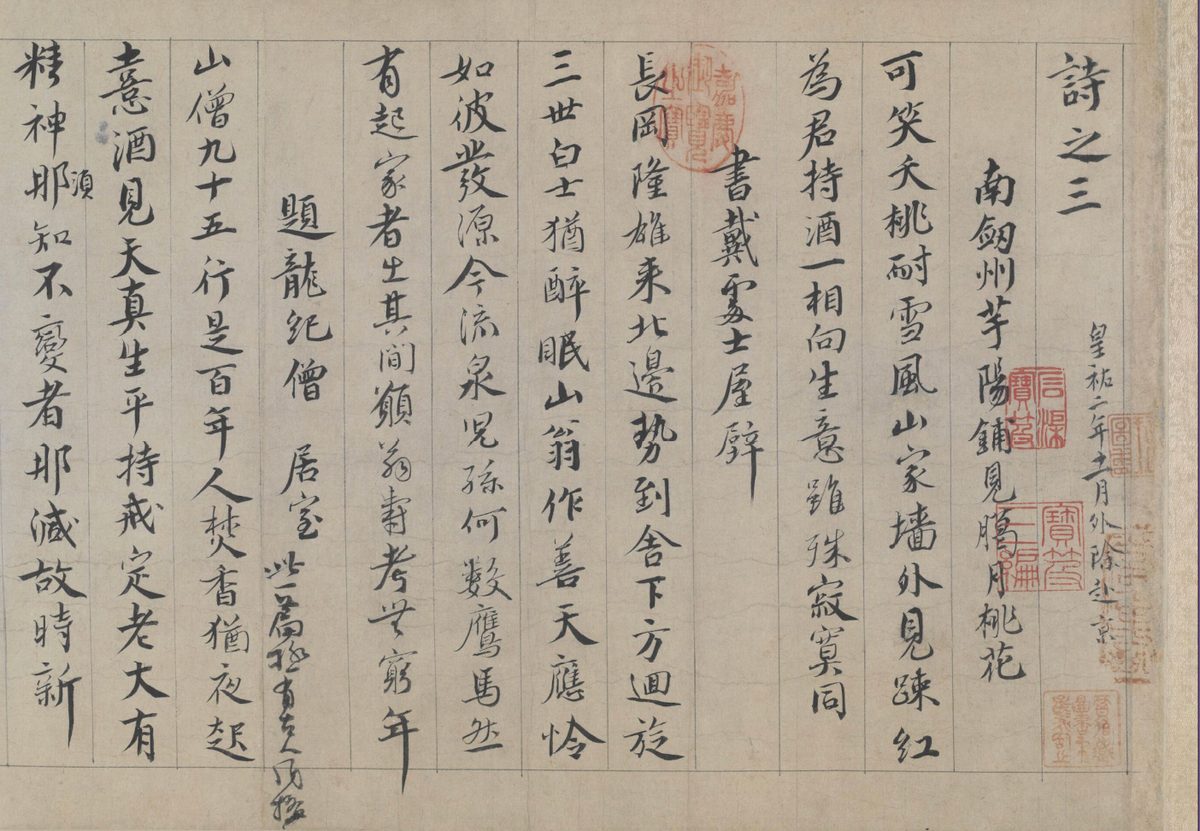 詩之三
皇祐二年十一月外除赴京
南劒州芋陽鋪見臘月桃花
可笑夭桃耐雪風山家墻外見踈紅
為君持酒一相向生意雖殊寂寞同
書戴處士屋壁
長岡隆雄來北邊勢到舍下方迴旋
三世白士猶醉眠山翁作善天應怜
如彼發源今流泉児孫何數鷹馬然
有起家者出其間願翁壽考無窮年
題龍紀僧居室
此一篇極有古人風格
山僧九十五行是百年人焚香猶夜起
憙酒見天真生平持戒定老大有
精神須
耶知不變者耶減故時新
嘉慶御覽之寶
寶笈三編